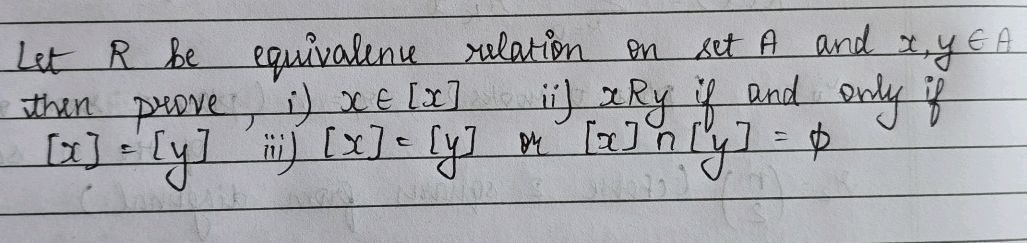 Let R be equivalence relation on set A and x, y ∈ A
then prove, i) x ∈ [x] ii) xRy if and only if
[x] = [y] iii) [x] = [y] or [x] ∩ [y] = ϕ